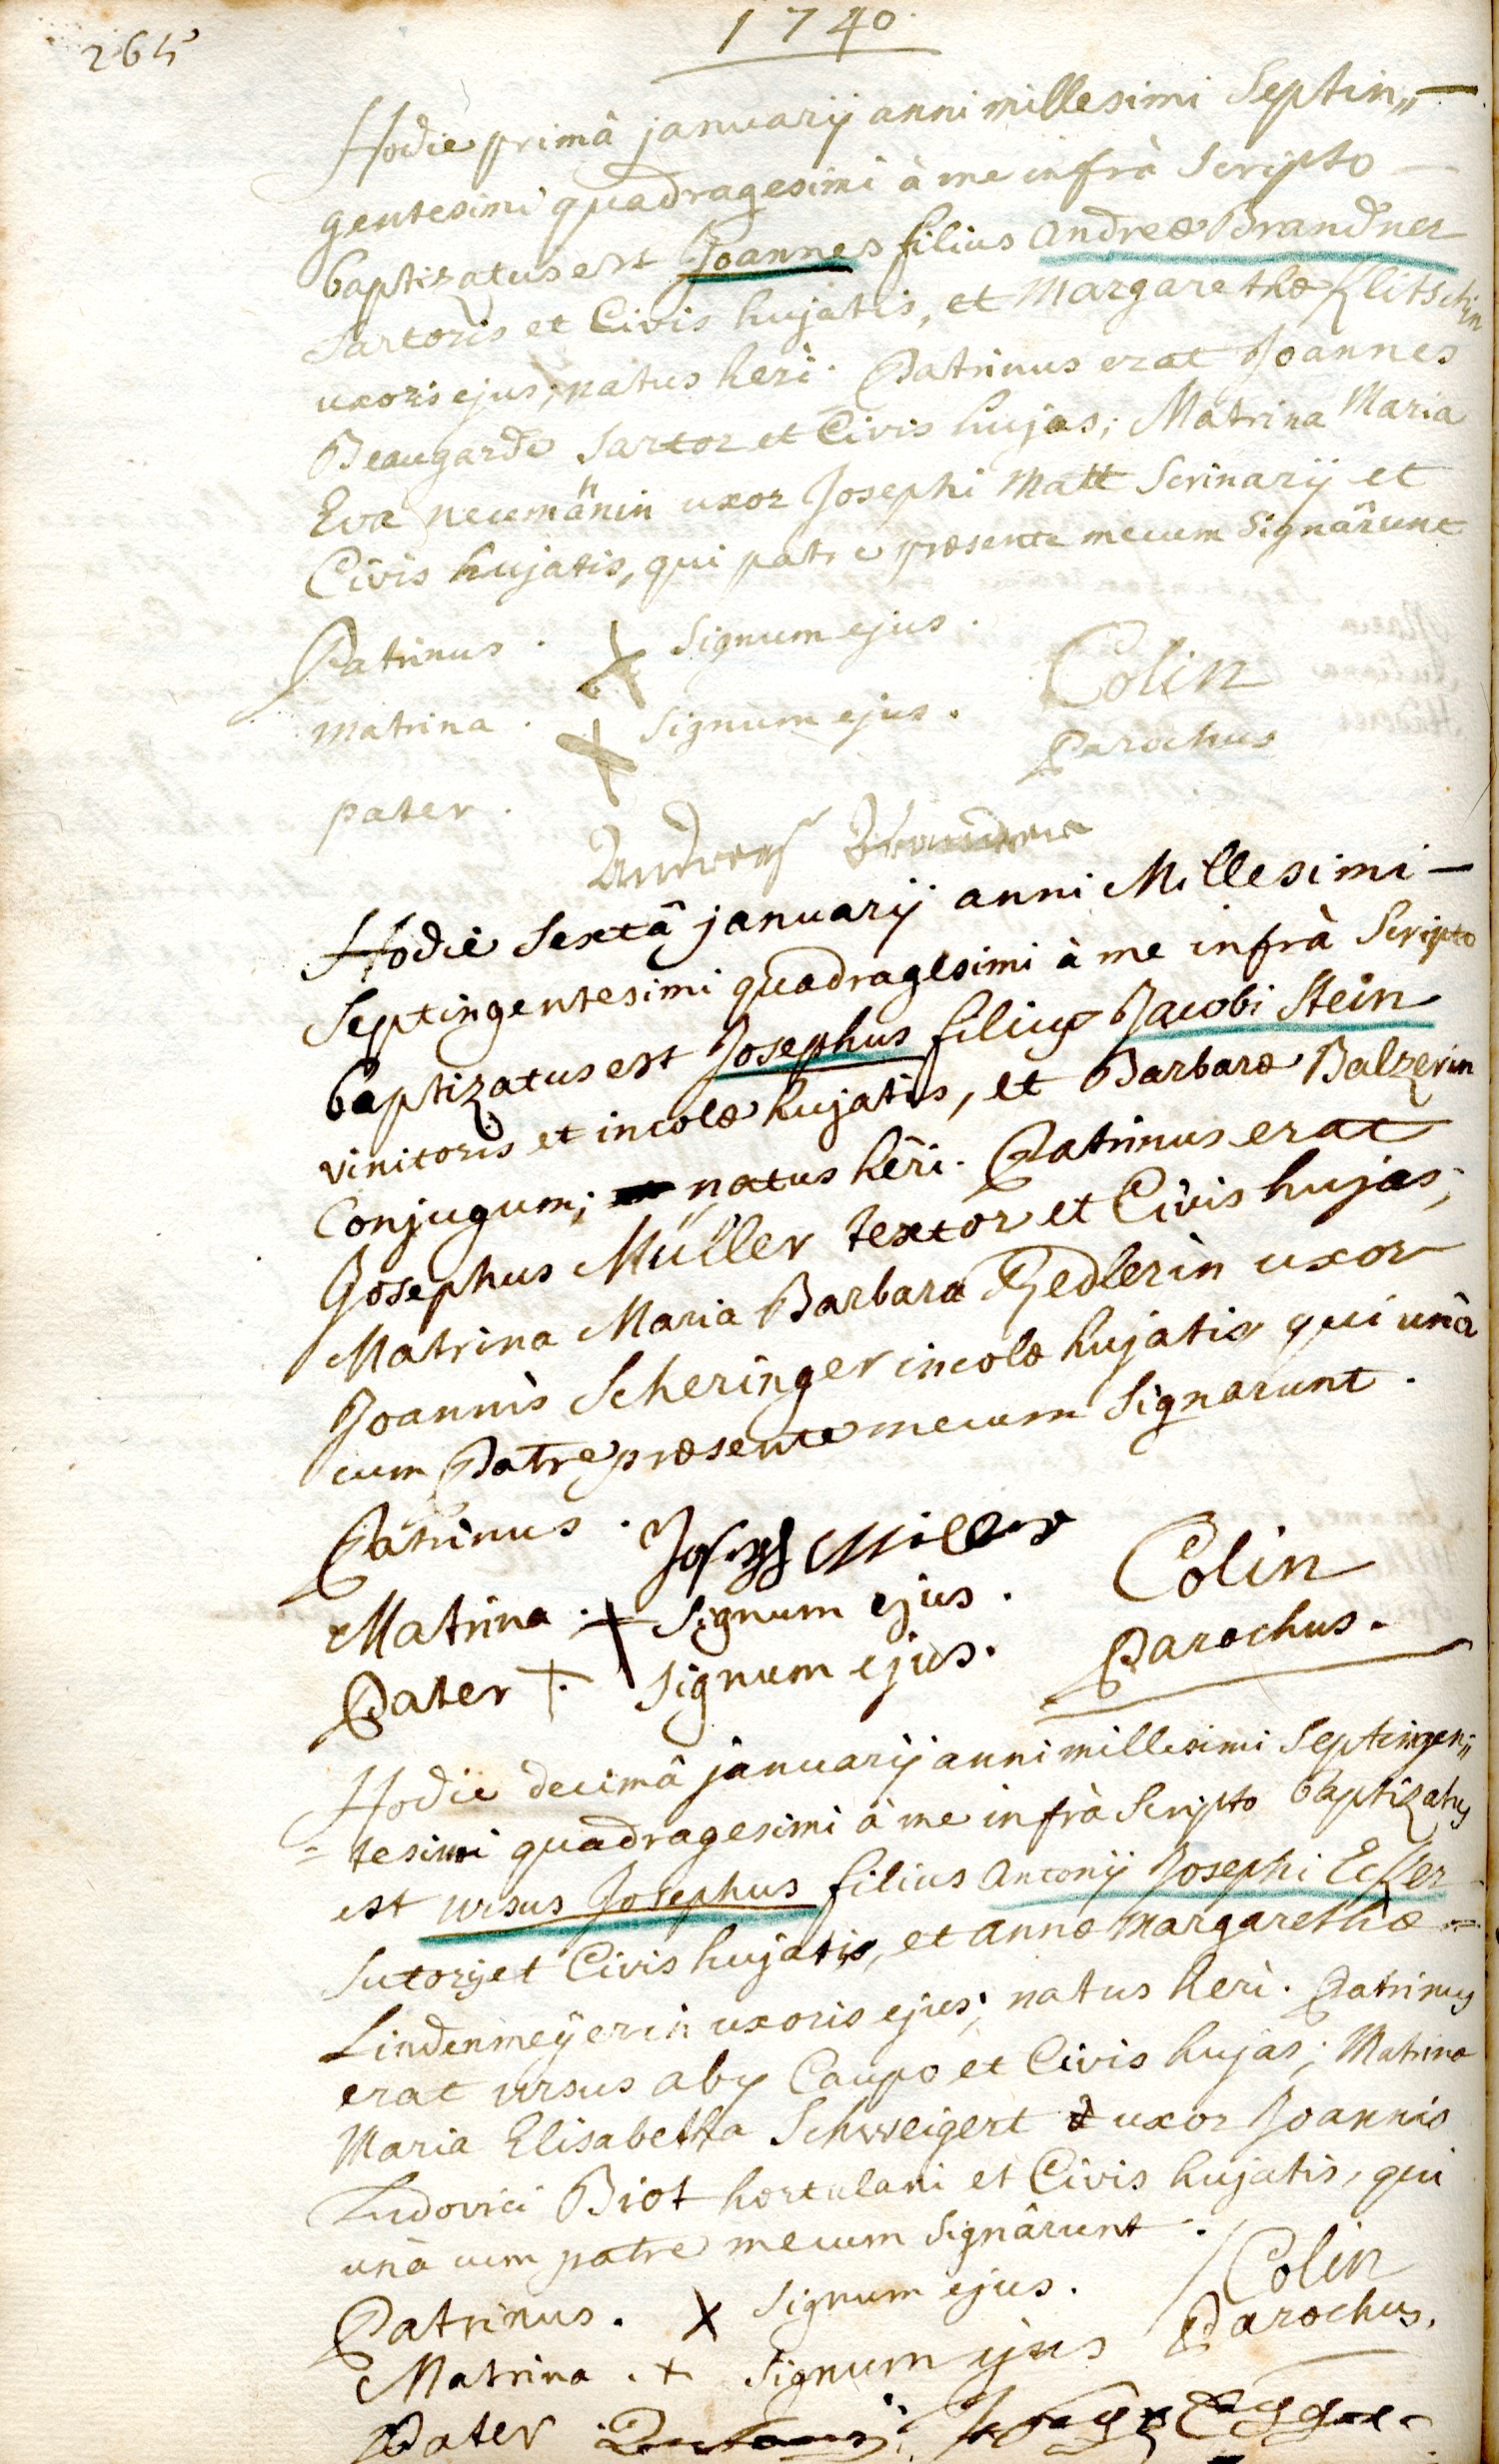 265
1740.
Hodie primâ januarÿ anni millesimi Septin„
gentesimi quadragesimi à me infrà Scripto
baptizatus est Joannes filius andreæ Brandner
Sartoris et Civis hujatis, et Margarethæ Klitschin
uxoris ejus; natus heri. Patrinus erat Joannes
Beaugarde Sartor et Civis hujas; Matrina Maria
Eva neumänin uxor Josephi Matt Scrinarÿ et
Civis hujatis, qui patre præsente mecum Signârunt
Patrinus. X Signum ejus.
Colin
matrina. X Signum ejus.
Parochus
pater.
Andreas
Hodie Sextâ januarÿ anni Millesimi
Septingentesimi quadragesimi à me infrà Scripto
baptizatus est Josephus filius Jacobi Stein
vinitoris et incolæ hujatis, et Barbaræ Balzerin
Conjugum; natus heri. Patrinus erat
Josephus Müller textor et Civis hujas;
Matrina Maria Barbara Gedlerin uxor
Joannis Scheringer incolæ hujatis qui unà
cum Patre præsente mecum Signarunt.
Patrinus. Joseph Miller
Colin
Matrina. + Signum ejus.
Parochus.
Pater +. Signum ejus.
Hodie decimâ januarÿ anni millesimi Septingen„
tesimi quadragesimi à me infrà Scripto baptizatus
est ursus Josephus filius antonÿ Josephi Ecker
Sutoris et Civis hujatis, et annæ margarethæ =
Lindenmeÿerin uxoris ejus; natus heri. Patrinus
erat ursus aby Caupo et Civis hujas; Matrina
Maria Elisabetha Schweigert uxor Joannis
Ludovici Biot hortulani et Civis hujatis, qui
unà cum patre mecum Signârunt.
Colin
Patrinus. X Signum ejus.
Parochus.
Matrina. + Signum ejus
Pater